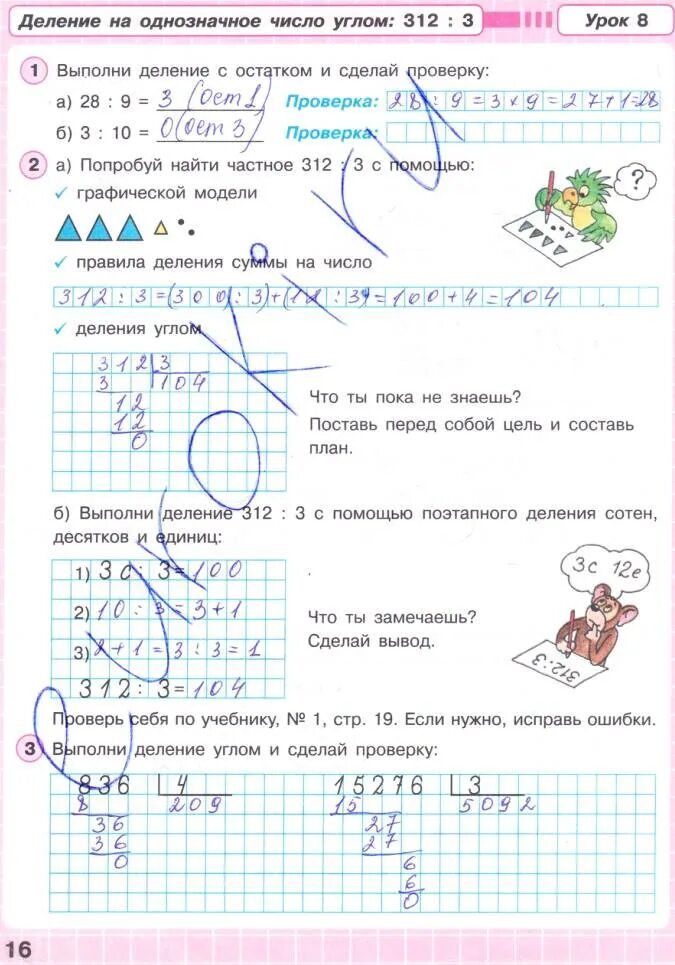 Деление на однозначное число углом: 312 : 3
Урок 8
1 Выполни деление с остатком и сделай проверку:
а) 28 : 9 = 3 (ост 1) Проверка: 28 : 9 = 3 × 9 = 27+1=28
б) 3 : 10 = 0 (ост 3) Проверка:
2 а) Попробуй найти частное 312 : 3 с помощью:
✓ графической модели
?
✓ правила деления суммы на число
312 : 3 = (300 : 3) + (12 : 3) = 100 + 4 = 104
✓ деления углом
312 3
3 104
12
12
0
Что ты пока не знаешь?
Поставь перед собой цель и составь
план.
б) Выполни деление 312 : 3 с помощью поэтапного деления сотен,
десятков и единиц:
1) 3 с : 3 = 100
2) 10 : 3 = 3 + 1
3) 2 + 1 = 3 : 3 = 1
312 : 3 = 104
3с 12е
312:3
Что ты замечаешь?
Сделай вывод.
Проверь себя по учебнику, № 1, стр. 19. Если нужно, исправь ошибки.
3 Выполни деление углом и сделай проверку:
836 4
8 209
36
36
0
15276 3
15 5092
27
27
6
6
0
16